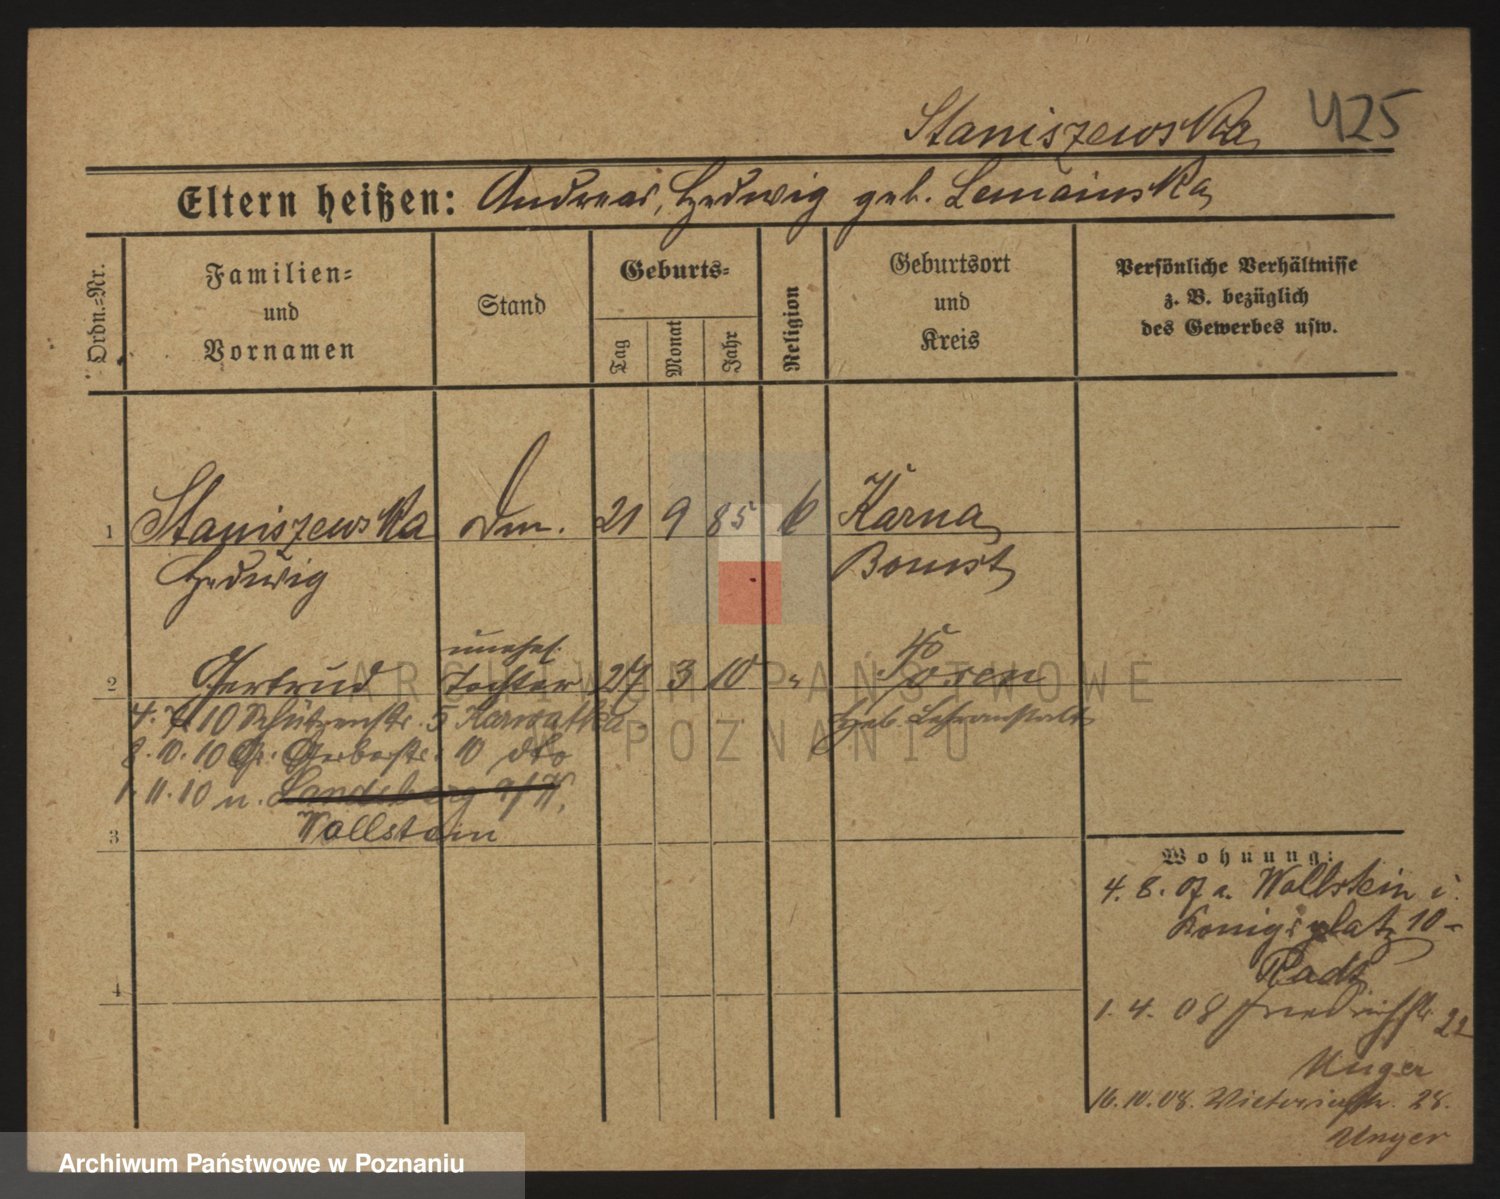 Staniszewska 425
Eltern heißen: Andreas, Hedwig geb. Lemainska
Ordn.-Nr.
Familien-
und
Vornamen
Stand
Geburts-
Tag
Monat
Jahr
Religion
Geburtsort
und
Kreis
Persönliche Verhältnisse
z. B. bezüglich
des Gewerbes usw.
1 Staniszewska 21 9 85 Karna
Hedwig Bomst
unehel.
2 Gertrud Tochter 27 3 10 " Posen
Heb. Lehranstalt
4. 10 Schützenstr. 5 Karwatka
8. 10. 10 Gr. Gerberstr. 10 dto
1. 11. 10 n. Landsberg a/W,
Wollstein
3
4
Wohnung:
4. 8. 07 a. Wollstein i.
Königsplatz 10 -
Radt
1. 4. 08 Friedrichstr 22
Unger
16. 10. 08. Victoriastr. 28.
Unger
ARCHIWUM PAŃSTWOWE
W POZNANIU
Archiwum Państwowe w Poznaniu